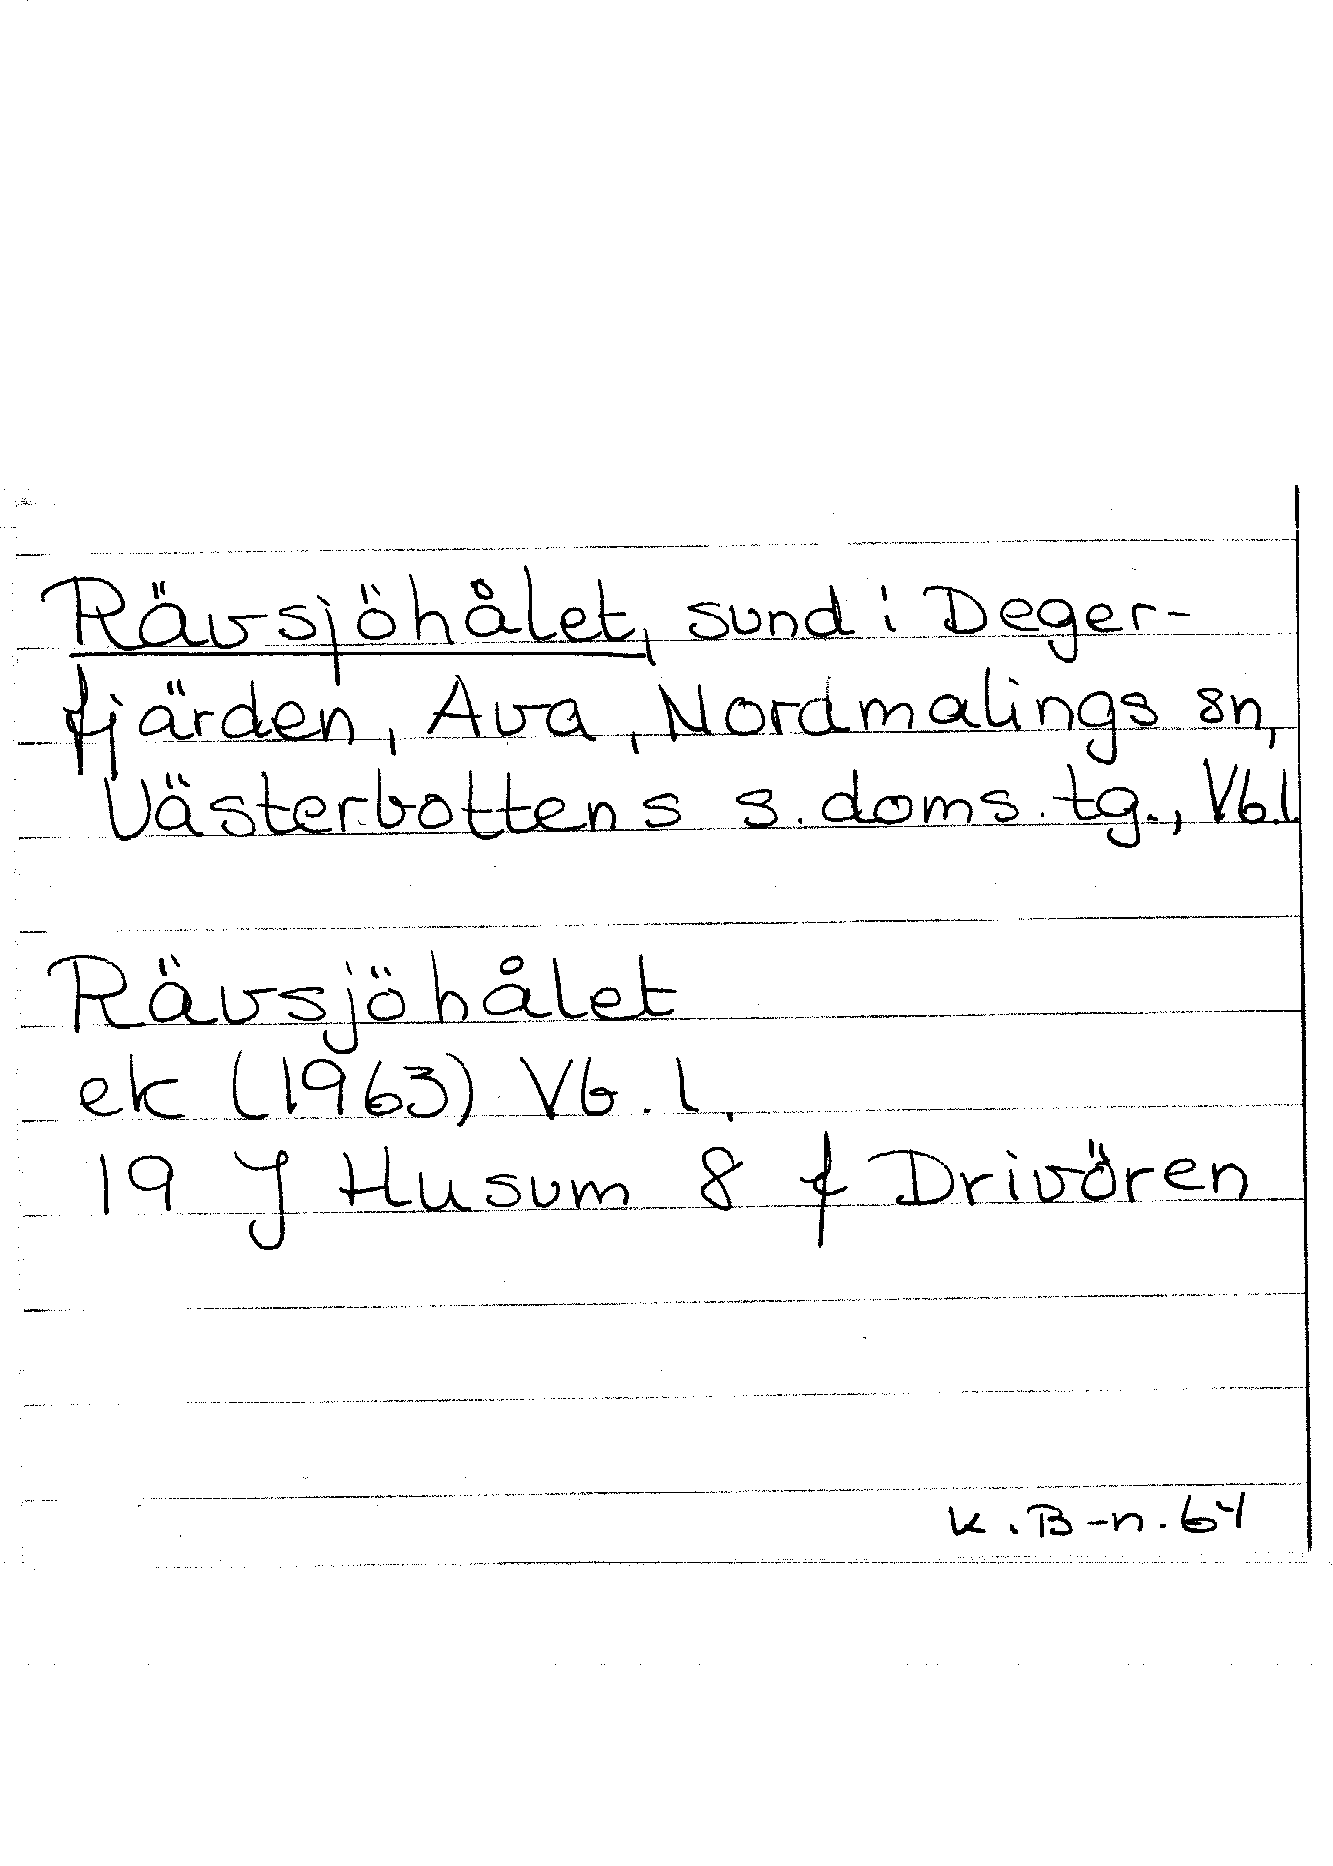 Rävsjöhålet, sund i Deger-
fjärden, Ava, Nordmalings sn,
Västerbottens s. doms. tg., Vb.l.
Rävsjöhålet
ek (1963) Vb. l.
19 J Husum 8 f Drivören
K. B-n. 64